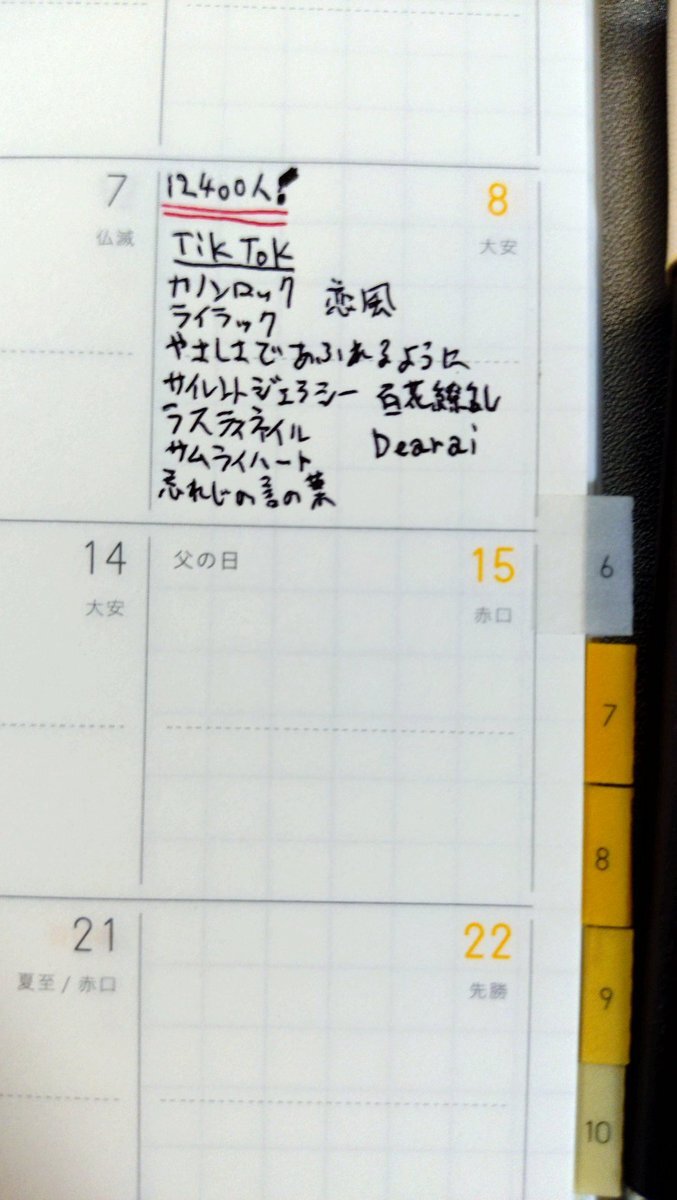 7
仏滅
12400人!
8
大安
TikTok
カノンロック 恋風
ライラック
やさしさであふれるように
サイレントジェラシー 百花繚乱
ラスティネイル
サムライハート Dearai
忘れじの言の葉
14
大安
父の日
15
赤口
21
夏至/赤口
22
先勝
6
7
8
9
10